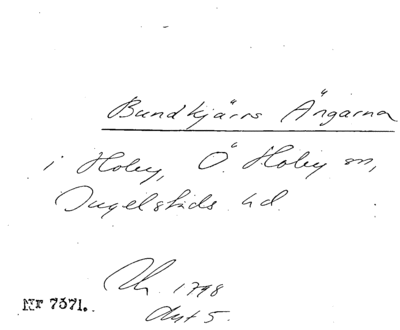 Bundkjärrs Ängarna
i Hoby, Ö. Hoby sn,
Ingelstads hd.
1798
Akt 5.
Nr 7371.